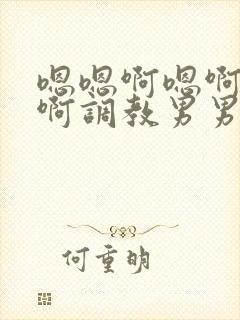 嗯嗯啊嗯啊
啊調教男男
何重明